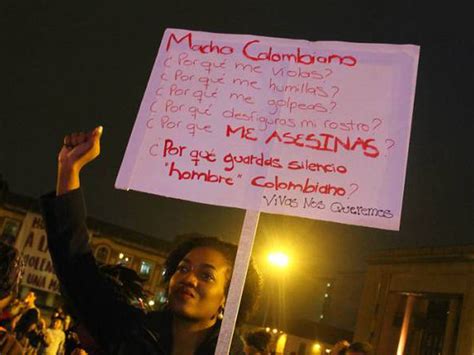 Macho Colombiano
¿Por qué me violas?
¿Por qué me humillas?
¿Por qué me golpeas?
¿Por qué desfiguras mi rostro?
¿Por qué ME ASESINAS?
¿Por qué guardas silencio
"hombre" Colombiano?
Vivas Nos Queremos
A LA
UNA